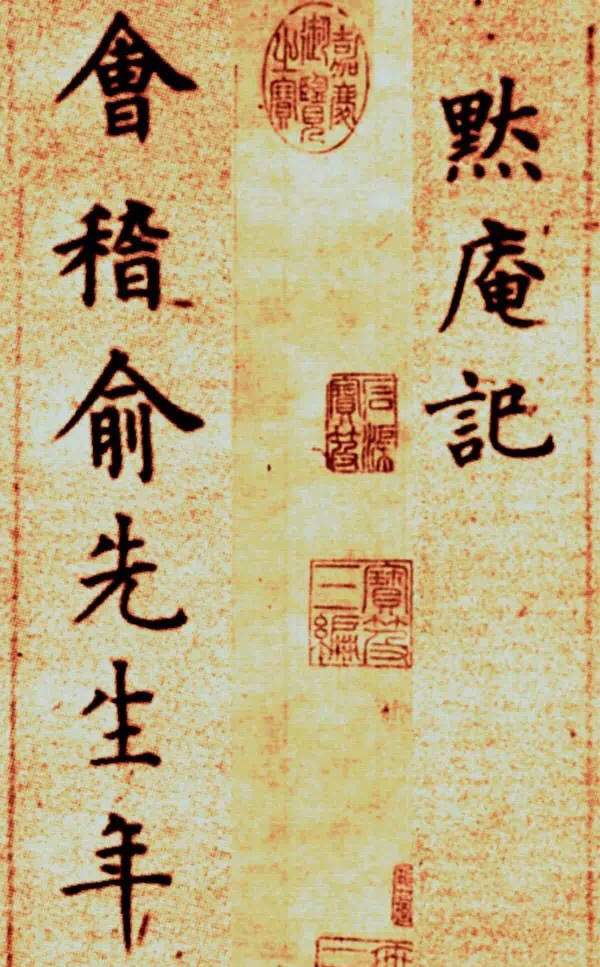 黙庵記
嘉慶御覽之寶
石渠寶笈
寶笈三編
會稽俞先生年